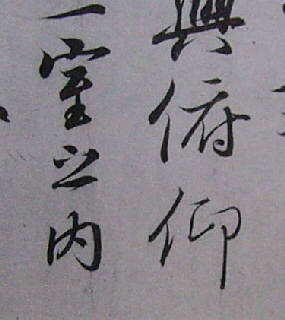 與俯仰
一室之內